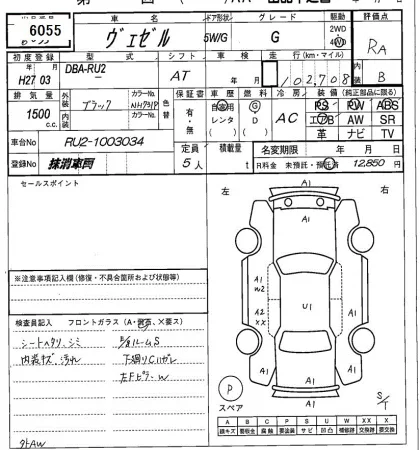 6055
車名 ドア形状 グレード 駆動 評価点
ヴェゼル 5W/G G 2WD 4WD RA
初度登録 型式 シフト 車検 走行(km・マイル) 内装
H27 03 DBA-RU2 AT 年 月 102,708 B
排気量 外装 カラーNo. 色替 保証書 車歴 燃料 冷房 装備(純正部品に限る)
1500 c.c. ブラック NH731P 有・無 自家用 レンタ ( ) G D ( ) AC PS PW ABS
内装 カラーNo. エアB AW SR
革 ナビ TV
車台No RU2-1003034 定員 積載量 名変期限 年 月 日
登録No 抹消車両 5人 t R料金 未預託・預託済 12,850 円
セールスポイント
左 右
A1
A1
A1 A1
A1 W2
A2 XX
U1
A1 A1
A1
※注意事項記入欄(修復・不具合箇所および状態等)
検査員記入 フロントガラス(A・飛石、X要ス)
シートヘタリ、シミ E/ルームS
内装キズ、汚れ 下廻りCハガレ
左Fピラー W
外AW
P
スペア
S/T
A B C P S U W XX X
線キズ 要板金 腐蝕 要塗装 サビ 凹凸 補修跡 交換跡 要交換